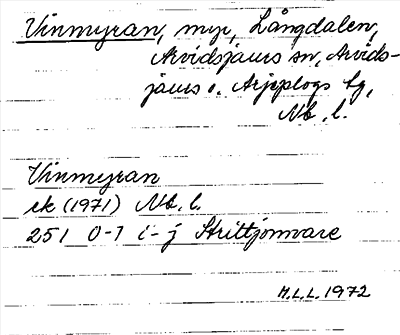 Vinmyran, myr, Långdalen,
Arvidsjaurs sn, Arvids-
jaurs o. Arjeplogs tg,
Nb. l.
Vinmyran
ek (1971) Nb. l.
251 0-1 i-j Strittjomvare
M.L.L. 1972